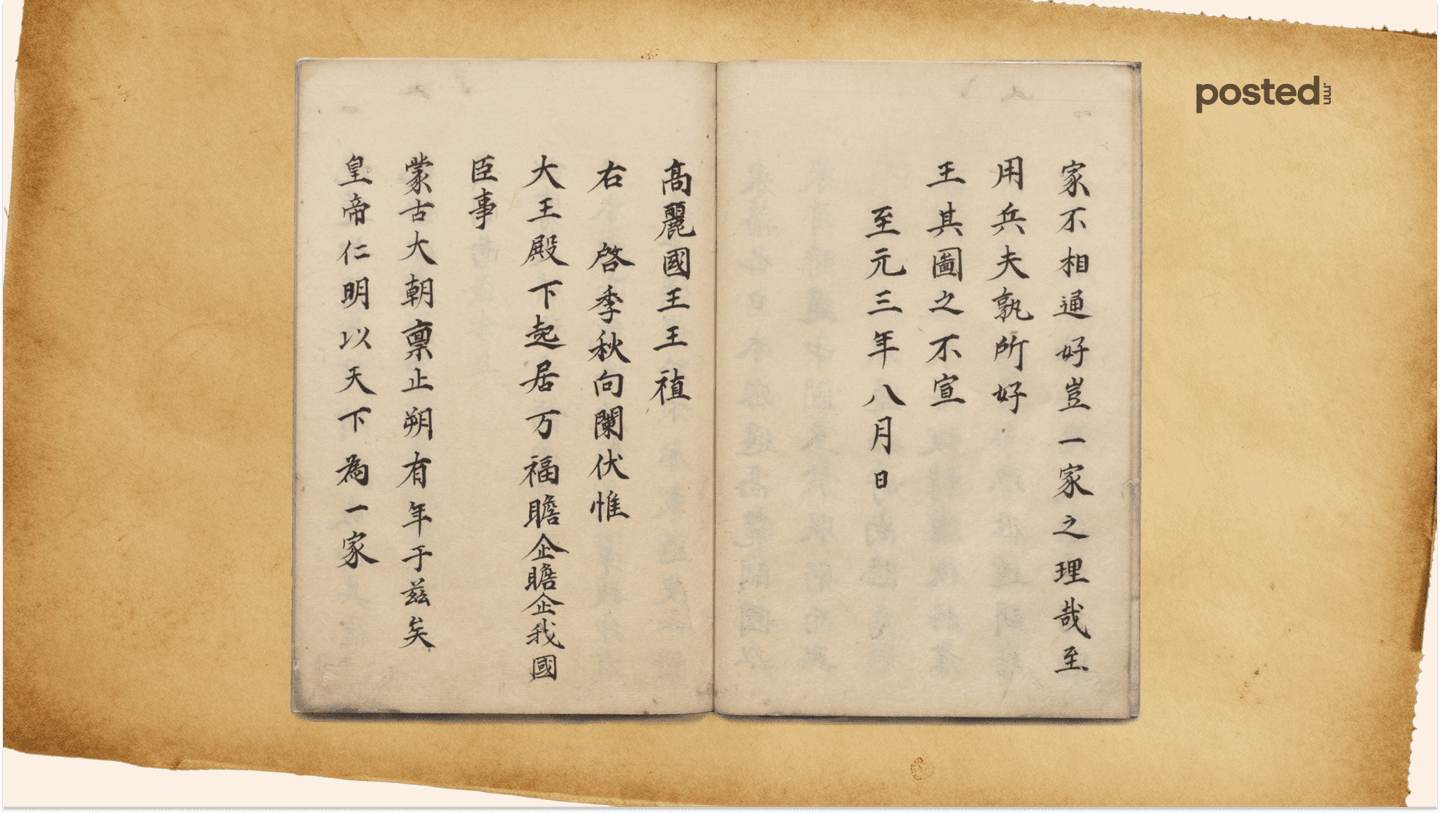 家不相通好豈一家之理哉至
用兵夫孰所好
王其圖之不宣
至元三年八月日
高麗國王王稙
右 啓季秋向闌伏惟
大王殿下起居万福瞻企瞻企我國
臣事
蒙古大朝禀止朔有年于兹矣
皇帝仁明以天下為一家
posted